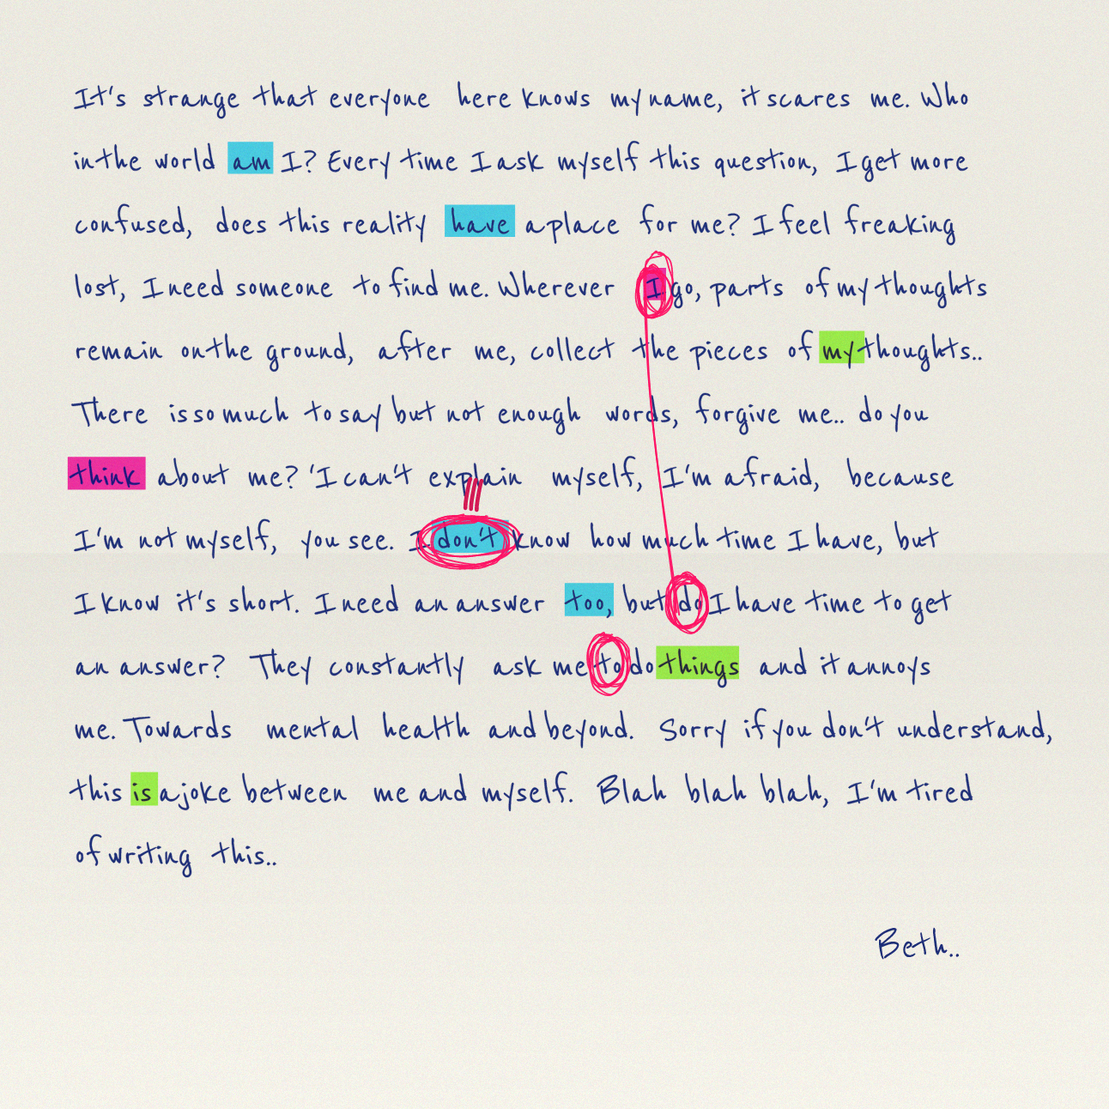 It's strange that everyone here knows my name, it scares me. Who
in the world am I? Every time I ask myself this question, I get more
confused, does this reality have a place for me? I feel freaking
lost, I need someone to find me. Wherever I go, parts of my thoughts
remain on the ground, after me, collect the pieces of my thoughts..
There is so much to say but not enough words, forgive me.. do you
think about me? 'I can't explain myself, I'm afraid, because
I'm not myself, you see. I don't know how much time I have, but
I know it's short. I need an answer too, but do I have time to get
an answer? They constantly ask me to do things and it annoys
me. Towards mental health and beyond. Sorry if you don't understand,
this is a joke between me and myself. Blah blah blah, I'm tired
of writing this..
Beth..